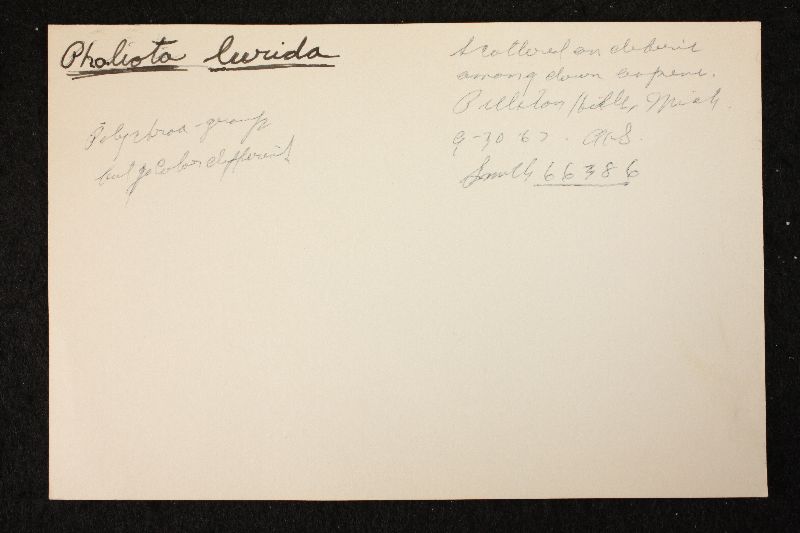 Pholiota lurida
Polychroa-group
but g color different
Scattered on debris
among down aspens.
Pellston Hills, Mich.
9-30-67. AHS.
Smith 66386